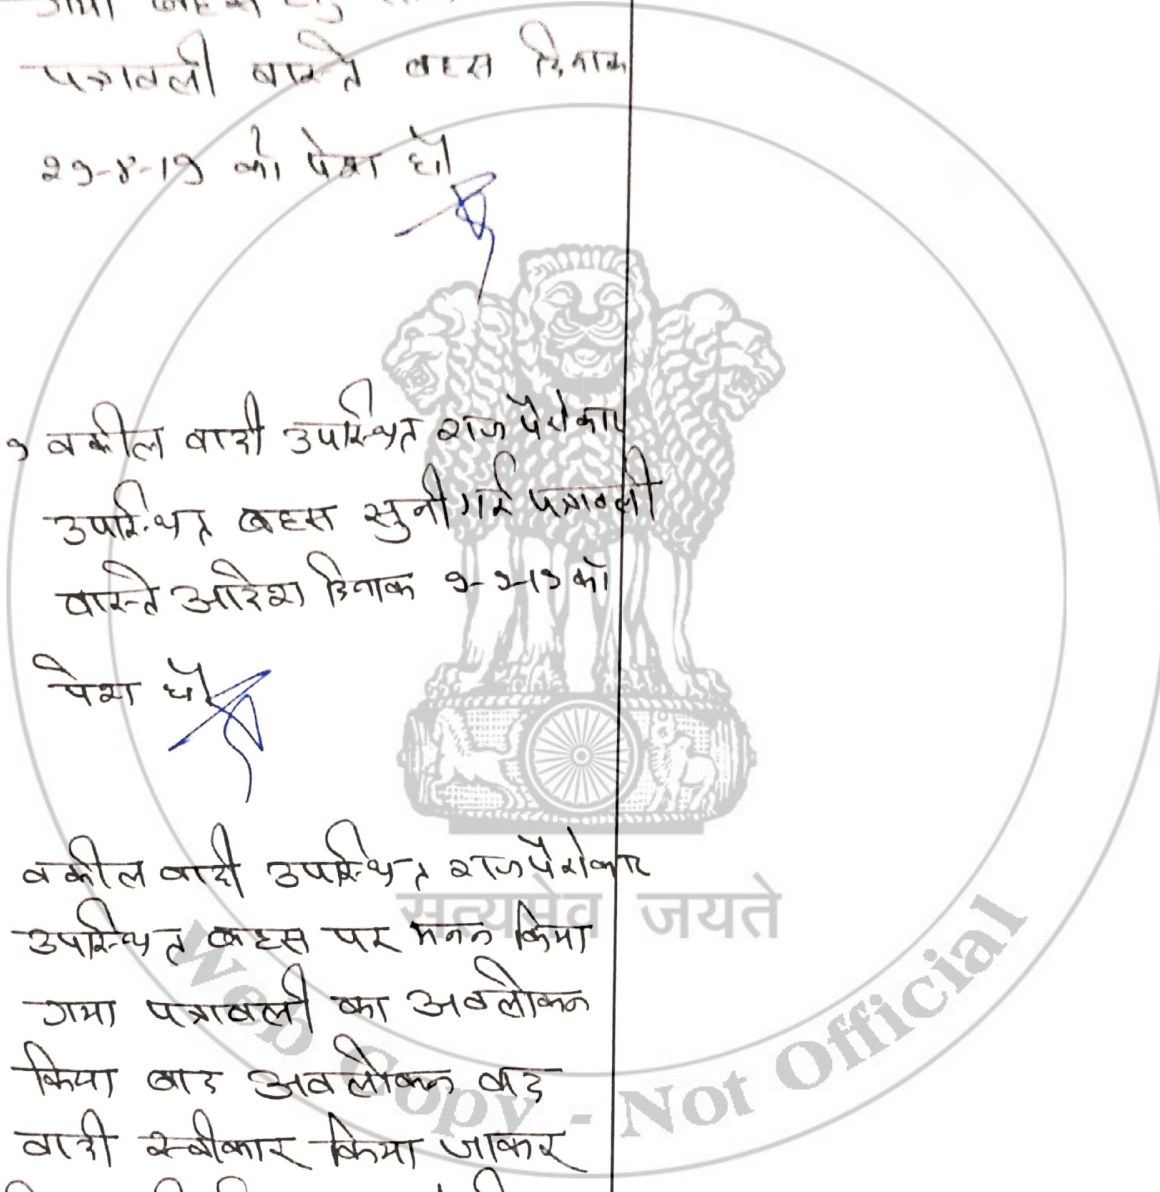 पत्रावली वास्ते बहस दिनांक
को पेश हो
वकील वादी उपस्थित राज पैरोकार
उपस्थित बहस सुनी गई पत्रावली
वास्ते आदेश दिनांक 9-9-19 को
पेश हो
वकील वादी उपस्थित राज पैरोकार
सत्यमेव जयते
उपस्थित बहस पर मनन किया
गया पत्रावली का अवलोकन
किया बाद अवलोकन वाद
वादी स्वीकार किया जाकर
Web Copy - Not Official